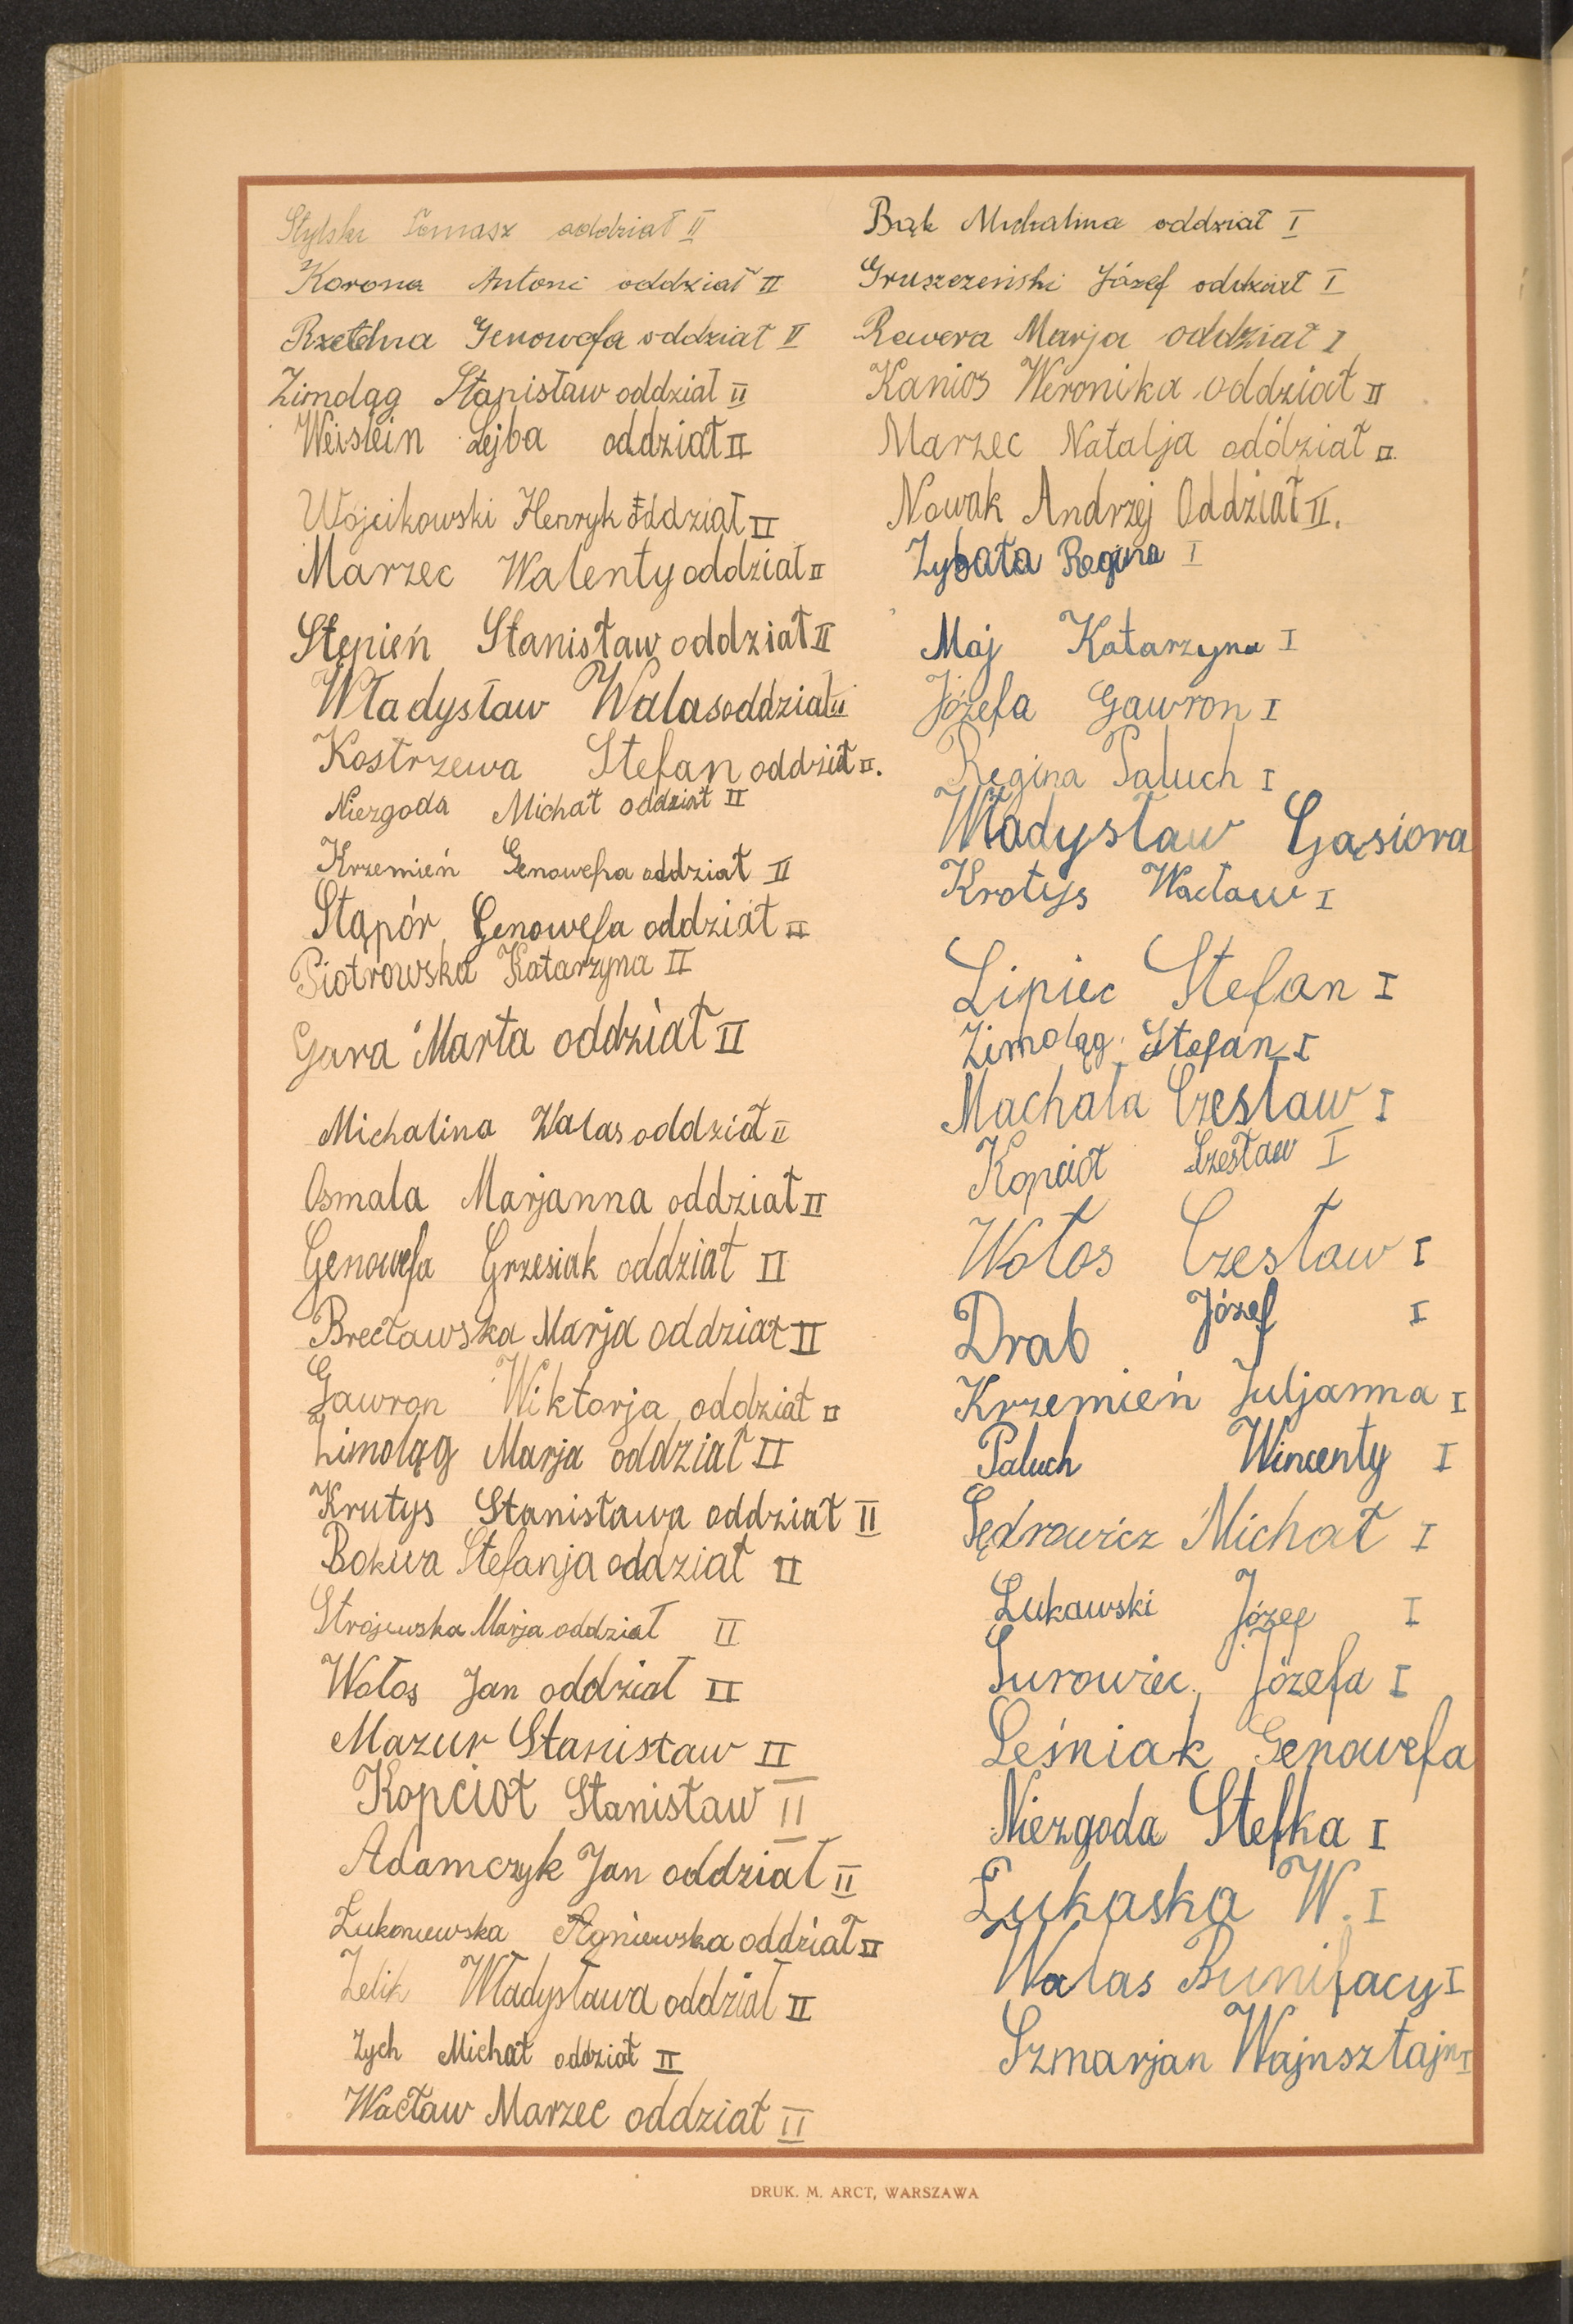 Stylski Tomasz oddział II
Korona Antoni oddział II
Rzetelna Genowefa oddział II
Zimoląg Stanisław oddział II
Weislein Lejba oddział II
Wójcikowski Henryk oddział II
Marzec Walenty oddział II
Stępień Stanisław oddział II
Władysław Walas oddział II
Kostrzewa Stefan oddział II.
Niezgoda Michał oddział II
Krzemień Genowefa oddział II
Stąpór Genowefa oddział II
Piotrowska Katarzyna II
Gara Marta oddział II
Michalina Walas oddział II
Osmala Marjanna oddział II
Genowefa Grzesiak oddział II
Brecławska Marja oddział II
Gawron Wiktorja oddział II
Zimoląg Marja oddział II
Krutys Stanisława oddział II
Bokwa Stefanja oddział II
Strojewska Marja oddział II
Wołos Jan oddział II
Mazur Stanisław II
Kopciot Stanisław II
Adamczyk Jan oddział II
oddział II
Zelik Władysława oddział II
Zych Michał oddział II
Wacław Marzec oddział II
Bąk Michalina oddział I
Gruszczeński Józef oddział I
Rawera Marja oddział I
Kanios Weronika oddział II
Marzec Natalja oddział II.
Nowak Andrzej Oddział II.
Zybała Regina I
Maj Katarzyna I
Józefa Gawron I
Regina Paluch I
Władysław Gąsiora
Krotys Wacław I
Lipiec Stefan I
Zimoląg Stefan I
Machala Czesław I
Kopciot Czesław I
Wołos Czesław I
Drab Józef I
Krzemień Juljanna I
Paluch Wincenty I
Sędrowicz Michał I
Łukawski Józef I
Surowiec Józefa I
Leśniak Genowefa
Niezgoda Stefka I
Łukaska W. I
Walas Bunifacy I
Szmarjan Wajnsztajn I
DRUK. M. ARCT, WARSZAWA